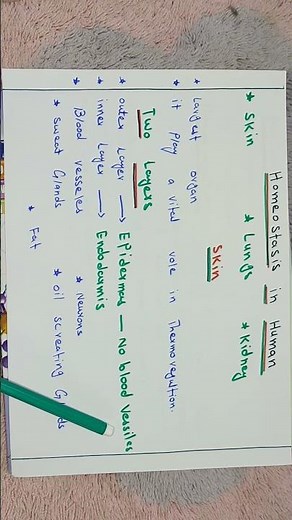 Homeostasis in Human
* Skin * Lungs * Kidney
Skin
* Largest organ
* it play a vital role in Thermoregultion.
Two Layers
* outer Layer → Epidermas — No blood Vessiles
* inner Layer → Endodarmis
* Blood vesseles * Neurons
* Sweat Glands * oil screating Glands
* Fat